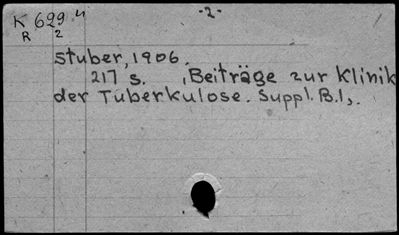 K 629.4 -2-
R 2
stuber, 1906.
217 s. (Beiträge zur Klinik
der Tuberkulose. Suppl. B.1).